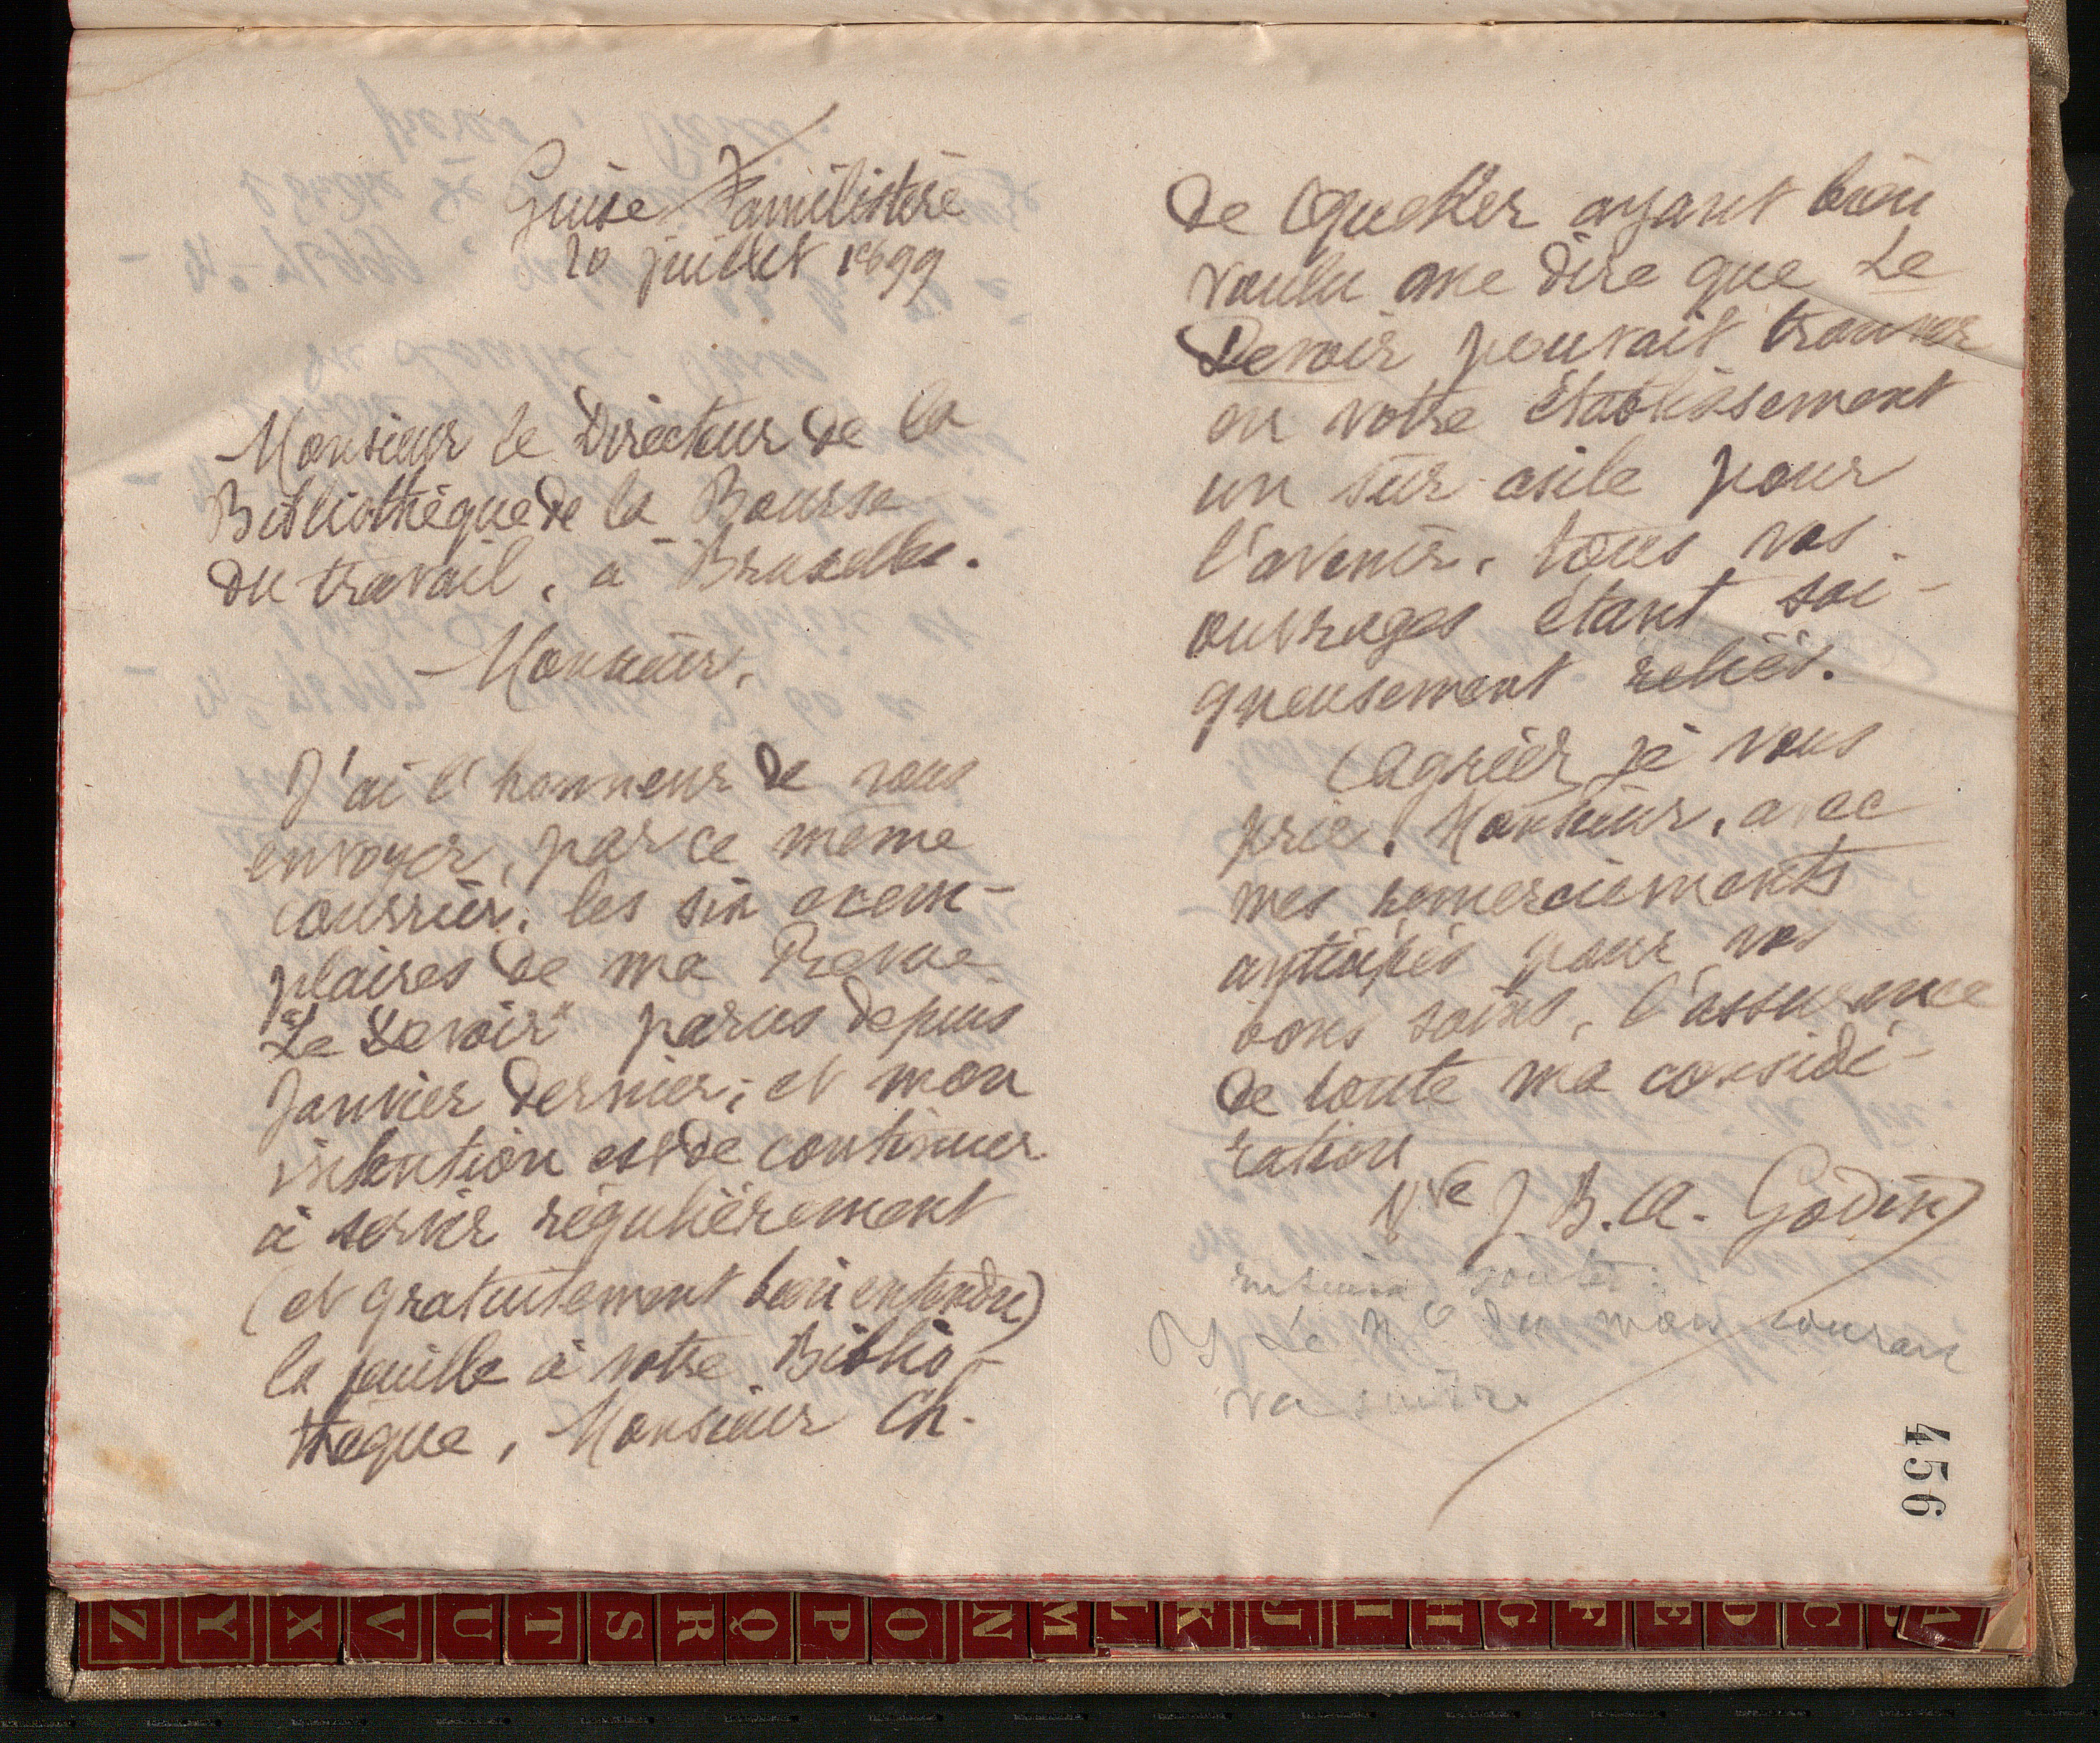 Guise Familistère
20 juillet 1899
Monsieur le Directeur de la
Bibliothèque de la Bourse
du travail, à Bruxelles.
Monsieur,
J'ai l'honneur de vous
envoyer, par ce même
courrier, les six exem-
plaires de ma Revue
"Le Devoir" parus depuis
Janvier dernier; et mon
intention est de continuer
à servir régulièrement
(et gratuitement bien entendu)
la feuille à votre Biblio-
thèque, Monsieur Ch.
de Quéker ayant bien
voulu me dire que Le
Devoir pouvait trouver
en votre établissement
un sûr asile pour
l'avenir, tous vos
ouvrages étant soi-
gneusement reliés.
Agréer je vous
prie, Monsieur, avec
mes remerciements
anticipés pour vos
bons soins, l'assurance
de toute ma considé-
ration
Vve J. B. A. Godin
PS Le No du mois courant
va suivre
456
Z Y X V U T S R Q P O N M L K J I H G F E D C B A